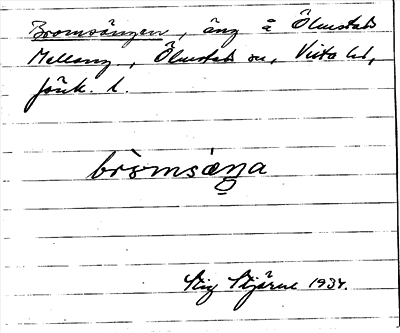 Bromsängen, äng å Ölmstads
Mellang., Ölmstads sn, Vista hd,
Jönk. l.
bròmsæŋa
Stig Stjärne 1934.